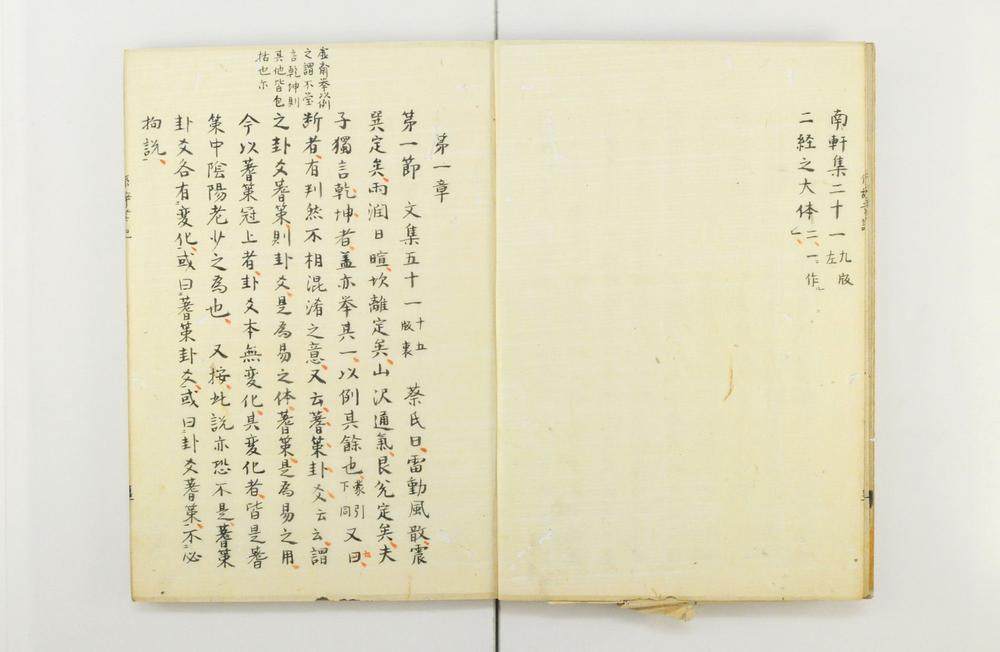 南軒集二十一九版左
二経之大体二、一作
第一章
第一節 文集五十一十五版裏 蔡氏曰雷動風散震
巽定矣雨潤日暄坎離定矣山沢通氣艮兌定矣夫
子獨言乾坤者蓋亦挙其一以例其餘也蒙引下同又曰
断者有判然不相混淆之意又云蓍策卦爻云云謂
之卦爻蓍策則卦爻是為易之体蓍策是為易之用
今以蓍策冠上者卦爻本無変化其変化者皆是蓍
策中陰陽老少之為也 又按此説亦恐不是蓍策
卦爻各有変化或曰蓍策卦爻或曰卦爻蓍策不必
拘説
虚斎挙以例
之謂不堂
言乾坤則
其他皆包
括也尓